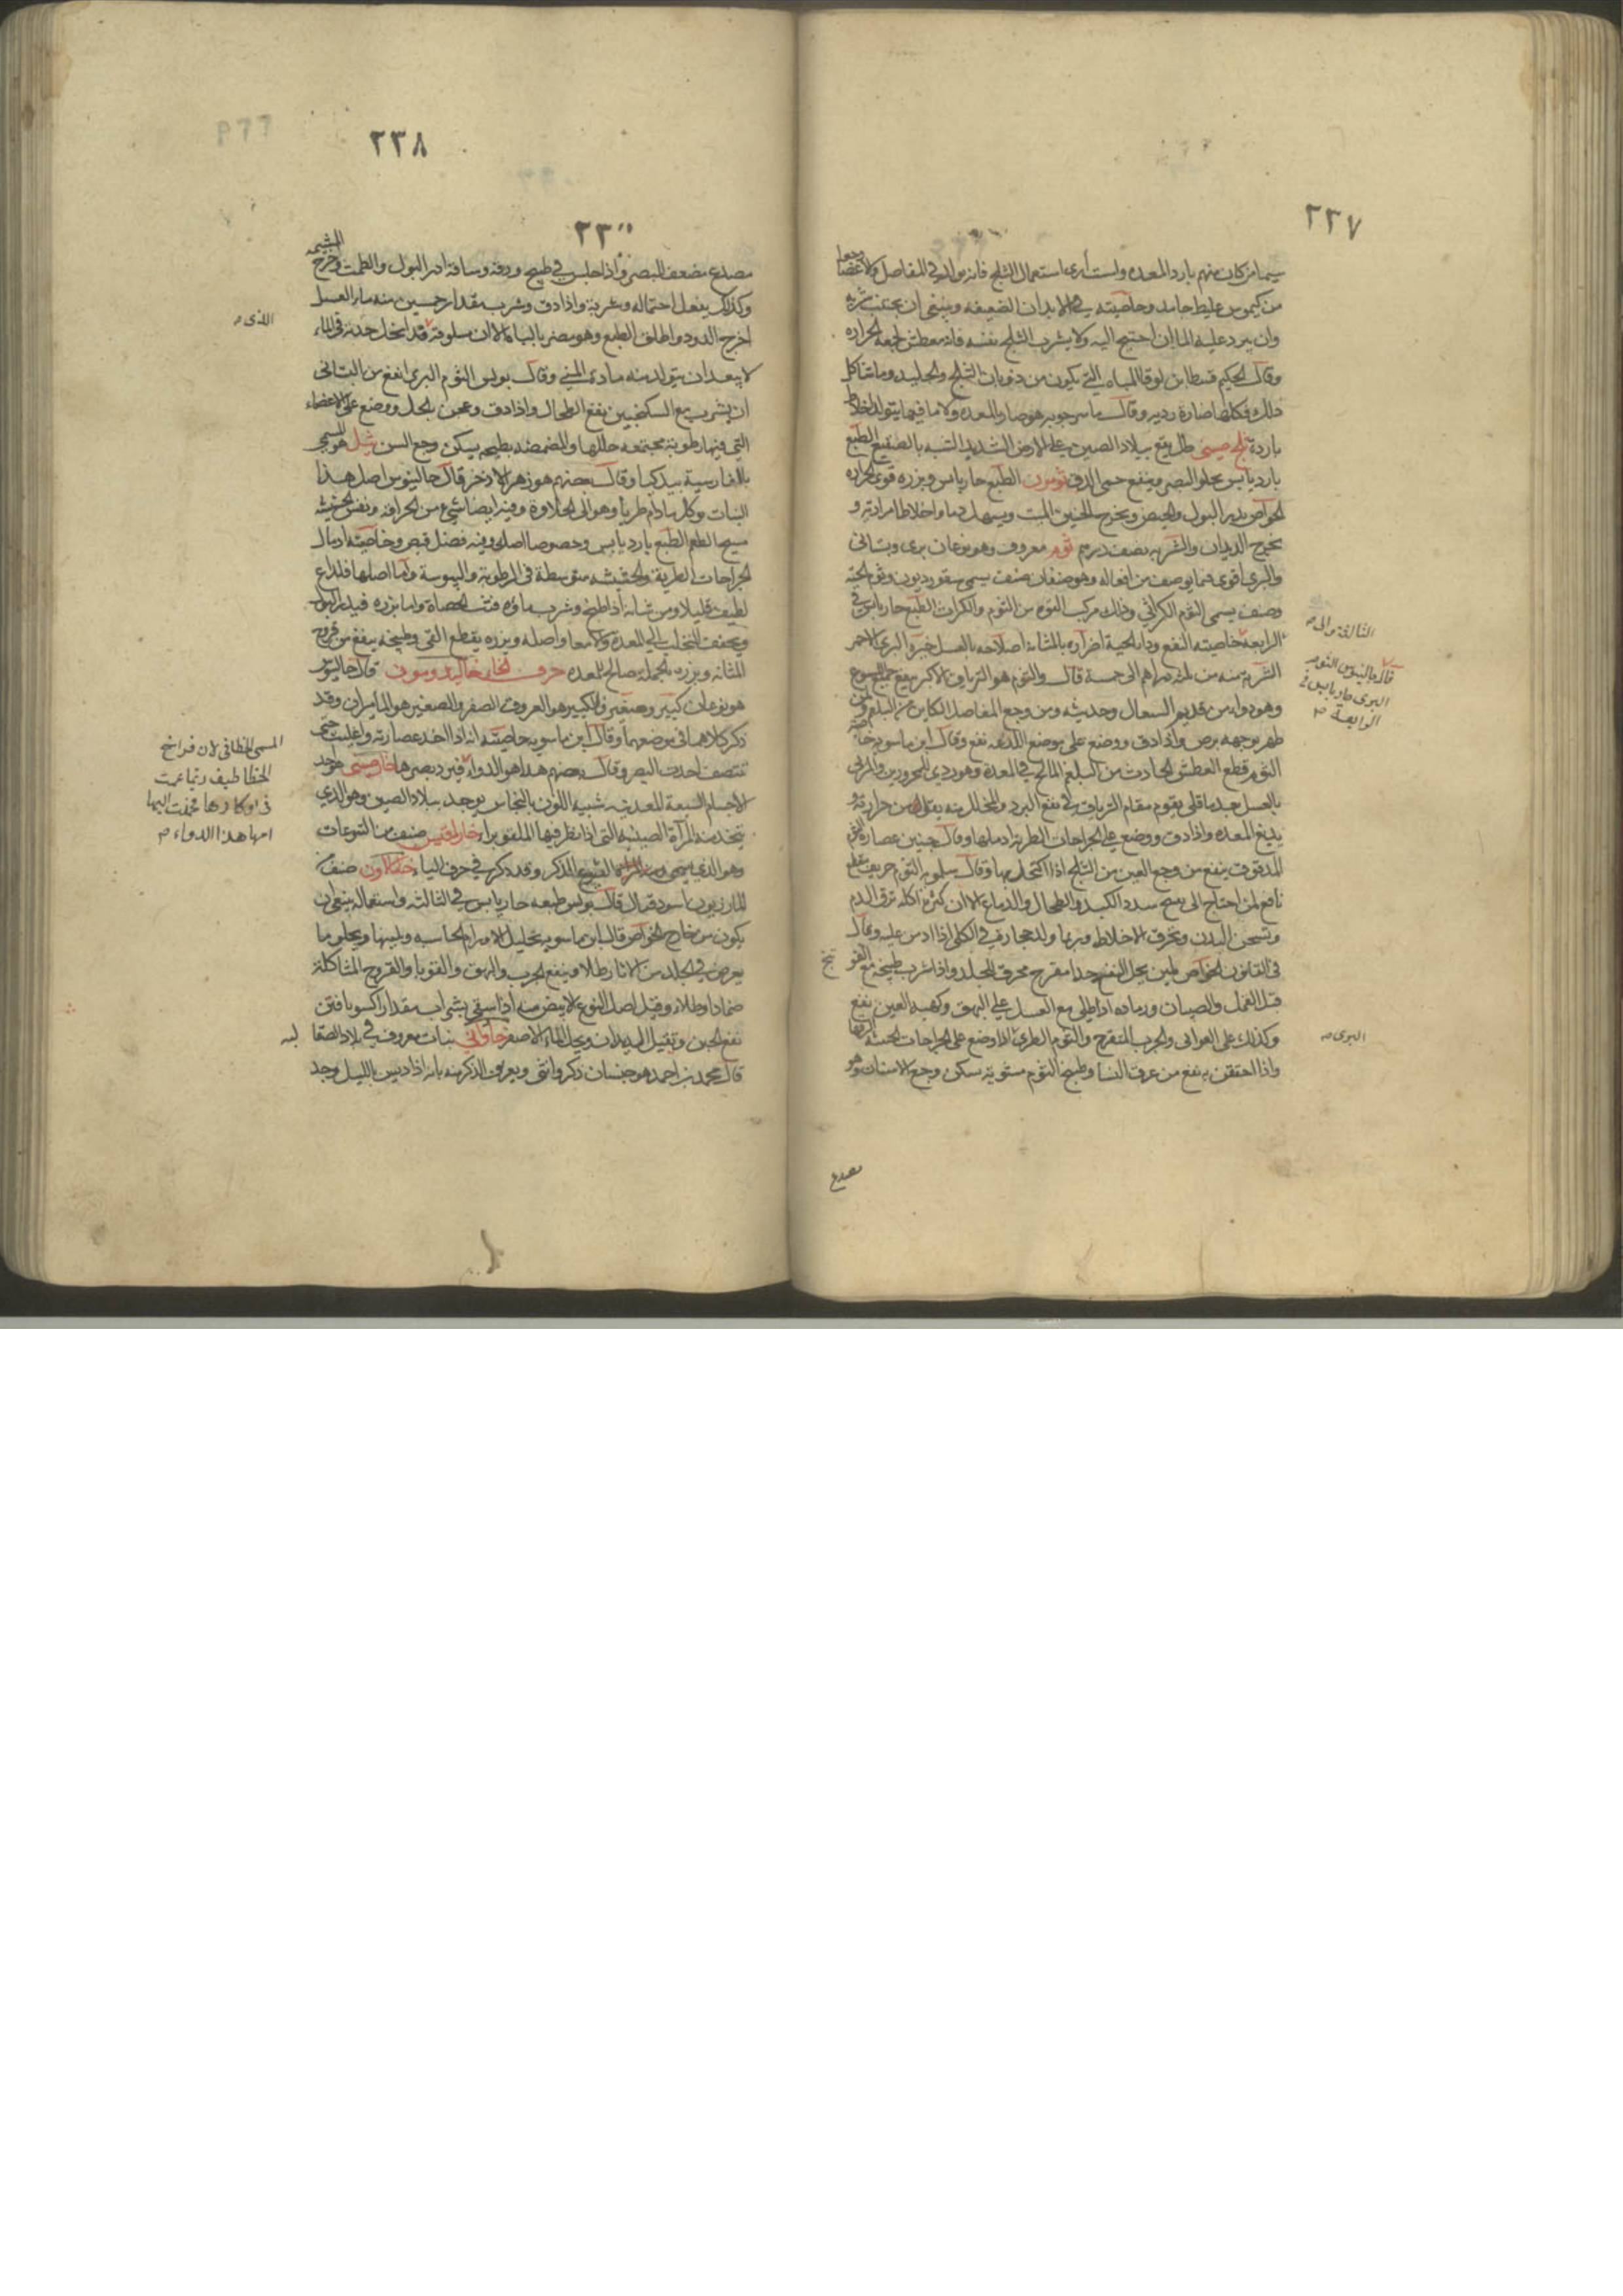 ٢٣٧
سيما من كان منهم بارد المعده ولست أرى استعمال الثلج فانه يولد في المفاصل والاعضا وجعا
من كيموس غليظ جامد وخاصيته في الابدان الضعيفه وينبغى ان يجتنب شربه
وان يبرد عليه الما ان احتيج اليه ولا يشرب الثلج نفسه فانه معطش لجمعه الحراره
وقال الحكيم قسطا بن لوقا المياه التي يكون من ذوبان الثلج والجليد وما شاكل
ذلك فكلها ضارة رديه وقال ماسرجويه هو ضار للمعده ولا سيما فيمن يتولد اخلاط
بارده ثلج صيني طل يقع ببلاد الصين على الارض الشديد الشبه بالصقيع الطبع
بارد يابس يجلو البصر وينفع حمى الدق ثومون الطبع حار يابس وبزره قوى الحراره
الخواص يدر البول والحيض ويخرج الجنين الميت ويسهل دما واخلاطا مراديه و
يخرج الديدان والشربه نصف درهم ثوم معروف وهو نوعان برى وبستانى
والبرى اقوى فيما يوصف من افعاله وهو صنفان صنف يسمى سقورديون وثوم الحية
وصنف يسمى الثوم الكراثي وذلك مركب القوه من الثوم والكراث الطبع حار يابس في
الرابعه خاصيته النفع ودا الحية اضراره بالمثانه اصلاحه بالعسل خيره البرى الاحمر
الشربه منه من دراهم الى خمسة قال والثوم هو الترياق الاكبر ينفع جميع السموم
وهو دواء من قديم السعال وحديثه ومن وجع المفاصل الكاين من البلغم ومن
ظهر بوجهه برص واذا دق ووضع على موضع اللدغه نفع وقال ابن ماسويه خاصة
الثوم قطع العطش الحادث من البلغم المالح في المعدة وهو ردي للمحرورين والمربى
بالعسل بعد ما قلى يقوم مقام الترياق في نفع البرد والمخلل منه يقلل من حرارته و
يدبغ المعده واذا دق ووضع على الجراحات الطريه ادملها وقال حنين عصاره الثوم
المدقوق ينفع من وجع العين من الثلج اذا اكتحل بها وقال سلمويه الثوم حريف
نافع لمن احتاج الى فتح سدد الكبد والطحال والدماغ الا ان كثرة اكله ترق الدم
وتسخن البدن وتحرق الاخلاط وربما ولد حجاره في الكلى اذا ادمن عليه وقال
فى القانون الخواص ملين يحل النفخ جدا مقرح محرق للجلد واذا شرب طبيخه مع الفو
قتل القمل والصيبان ورماده اذا طلى مع العسل على البهق وكهبه العين نفع
وكذلك على القوابى والجرب المتقرح والثوم الطرى اذا وضع على الجراحات الخبيثة
واذا احتقن به نفع من عرق النسا وطبيخ الثوم مشويته سكن وجع الاسنان وهو
الثالثة والى
قال جالينوس الثوم
البرى حار يابس فى
الرابعة
البرى
مصدع
٢٣٨
٢٣٠
مصدع مضعف البصر واذا جلس في طبيخ ورقه وساقه ادر البول والطمث واخرج المشيمه
وكذلك يفعل احتماله وشربه واذا دق وشرب مقدار خمسين منه بماء العسل
اخرج الدود واطلق الطبع وهو مضر بالباه الا ان سلوقه قد انحل حدته في الماء
لا يبعد ان يتولد منه مادى المني وقال بولس الثوم البرى انفع من البستانى
ان يشرب مع السكنجبين نفع الطحال واذا دق وعجن بالخل ووضع على الاعضاء
التي فيها رطوبة مجتمعه حللها والمضمضه بطبيخه يسكن وجع السن ثيل هو المسمى
بالفارسية بيد كيا وقال بعضهم هو زهر الاذخر قال جالينوس اصل هذا
النبات يوكل ما دام طريا وهو الى الحلاوة وفيه ايضا شيء من الحرافه ونفس الحشيشه
مسيخ الطعم الطبع بارد يابس وخصوصا اصله وفيه فضل قبض وخاصيته ادمال
الجراحات الطرية والحشيشه متوسطة في الرطوبة واليبوسة واما اصلها فلذاع
لطيف قليلا ومن شانه اذا طبخ وشرب ماؤه فتت الحصاة واما بزره فيدر البول
ويجفف المتحلب الى المعده والامعا واصله وبزره يقطع القى وطبيخه ينفع من قروح
المثانه وبزره بالجمله صالح للمعده حرف الخاء خاليدونيون قال جالينوس
هو نوعان كبير وصغير والكبير هو العروق الصفر والصغير هو الماميران وقد
ذكر كلاهما فى موضعهما وقال ابن ماسويه خاصيته انه اذا اخذ عصارته واغليت حتى
تنتصف احدت البصر وقال بعضهم هذا هو الدواء فيرد بصرها خارصيني هو احد
الاجسام السبعة المعدنيه شبيه اللون بالنحاس يوجد ببلاد الصين وهو الذي
يتخذ منه المرآة الصينيه التى اذا نظر فيها الملقو برا خاراقنيس صنف من اليتوعات
وهو الذي يسمى اليتوع الذكر وقد ذكر في حرف الياء خمالاون صنف من
المازريون اسود قتال قال بولس طبعه حار يابس في الثالثه واستعماله ينبغى ان
يكون من خارج الخواص قال ابن ماسويه بتحليل الاورام الجاسيه وتليينها ويجلو ما
يعرض في الجلد من الاثار طلاء وينفع الجرب والبهق والقوبا والقروح المتاكلة
ضمادا وطلاء وقيل اصل النوع الابيض منه اذا سقى بشراب مقدار اكسوبافن
نفع الجبن وتقتل الديدان ويحل الماء الاصفر خاوانى نبات معروف في بلاد الصقا لبه
قال محمد بن احمد هو جنسان ذكر وانثى ويعرف الذكر منه بانه اذا ديس بالليل وجد
الذى
المسمى الخطافى لان فراخ
الخطاطيف ربما عميت
فى اوكارها فجلبت اليها
امها هذا الدواء